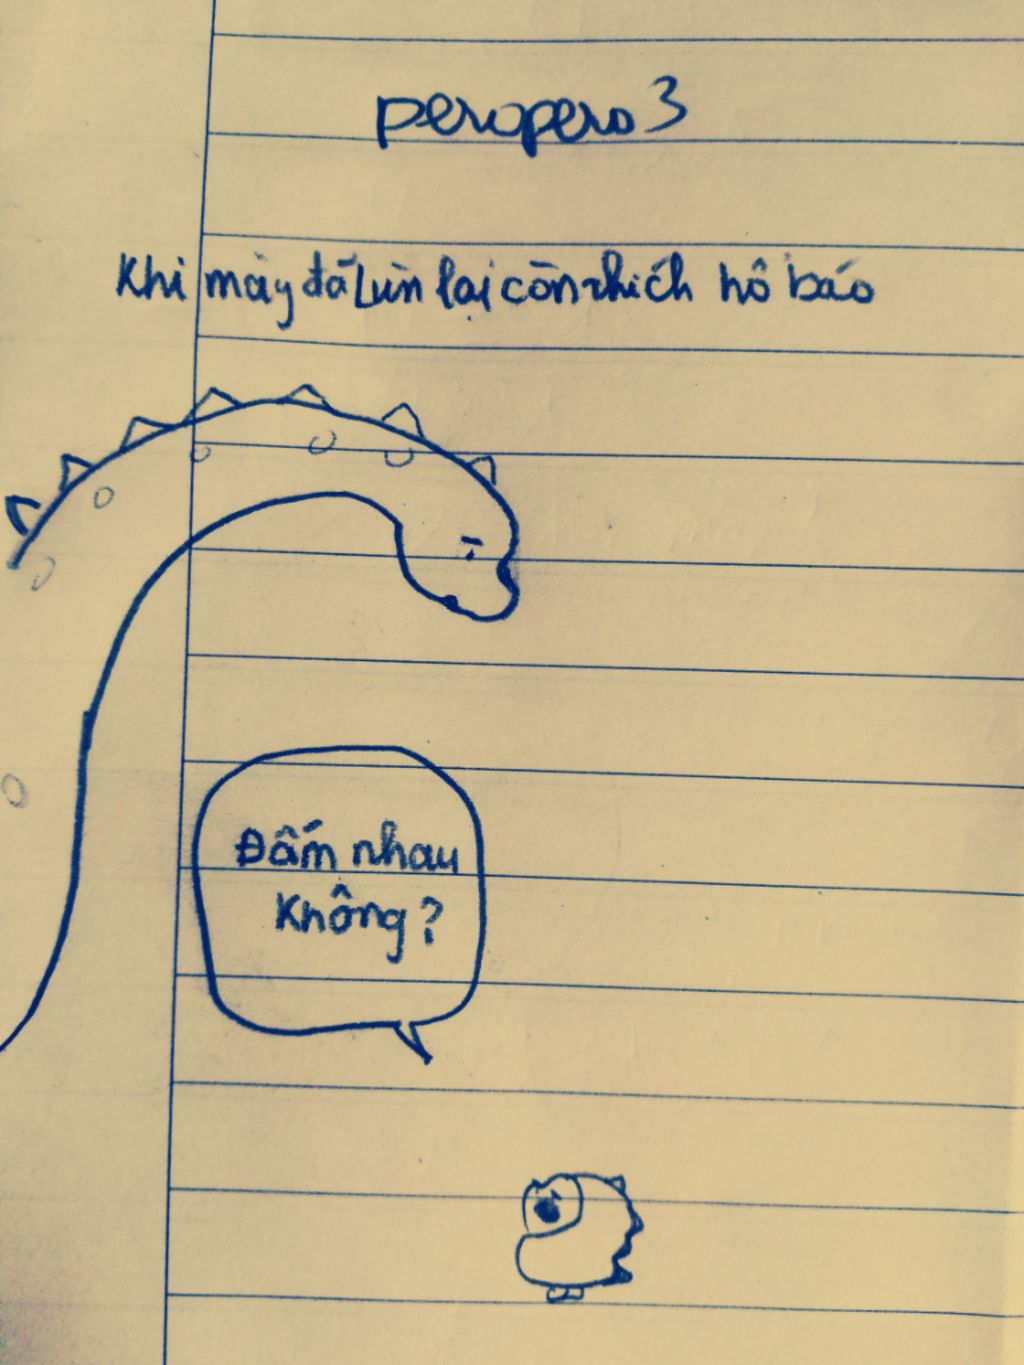 peropero3
Khi mày đã Lùn lại còn thích hổ báo
Đấm nhau
Không?